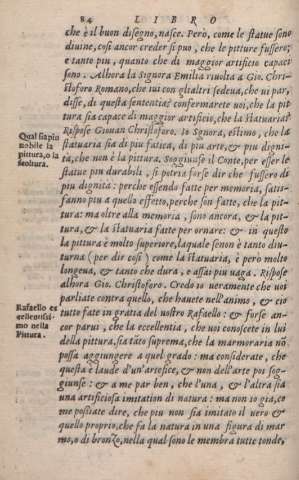 84 LIBRO
che è il buon disegno, nasce. Però, come le statue sono
diuine, così ancor creder si puo, che le pitture fussero;
e tanto piu, quanto che di maggior artificio capaci
sono. Allhora la Signora Emilia riuolta a Gio. Chri-
stoforo Romano, che iui con gli altri sedeua, che vi par,
disse, di questa sententia? confermarete voi, che la pit
tura sia capace di maggior artificio, che la statuaria?
Rispose Giouan Christoforo. Io Signora, estimo, che la
Qual sia piu
nobile la
pittura, o la
scoltura.
statuaria sia di piu fatica, di piu arte, & piu digni-
tà, che non è la pittura. Soggiunse il Conte, per esser le
statue piu durabili, si potria forse dir che fussero di
piu dignita: perche essendo fatte per memoria, satis-
fanno piu a quello effetto, perche son fatte, che la pit-
tura: ma oltre alla memoria, sono ancora, & la pit-
tura, & la statuaria fatte per ornare: & in questo
la pittura è molto superiore, laquale senon è tanto diu-
turna (per dir così) come la statuaria, è però molto
longeua, & tanto che dura, e assai piu vaga. Rispose
alhora Gio. Christoforo. Credo io veramente che voi
Rafaello ec
cellentissi-
mo nella
Pittura.
parliate contra quello, che hauete nell'animo, & ciò
tutto fate in gratia del vostro Rafaello: & forse an-
cor parui, che la eccellentia, che voi conoscete in lui
della pittura, sia tāto suprema, che la marmoraria nō
possa aggiungere a quel grado: ma considerate, che
questa è laude d'un'artefice, & non dell'arte poi sog-
giunse: & a me par ben, che l'una, & l'altra sia
una artificiosa imitation di natura: ma non io già, co
me possiate dire, che piu non sia imitato il vero &
quello proprio, che fa la natura in una figura di mar
mo, o di bronzo, nella qual sono le membra tutte tonde,